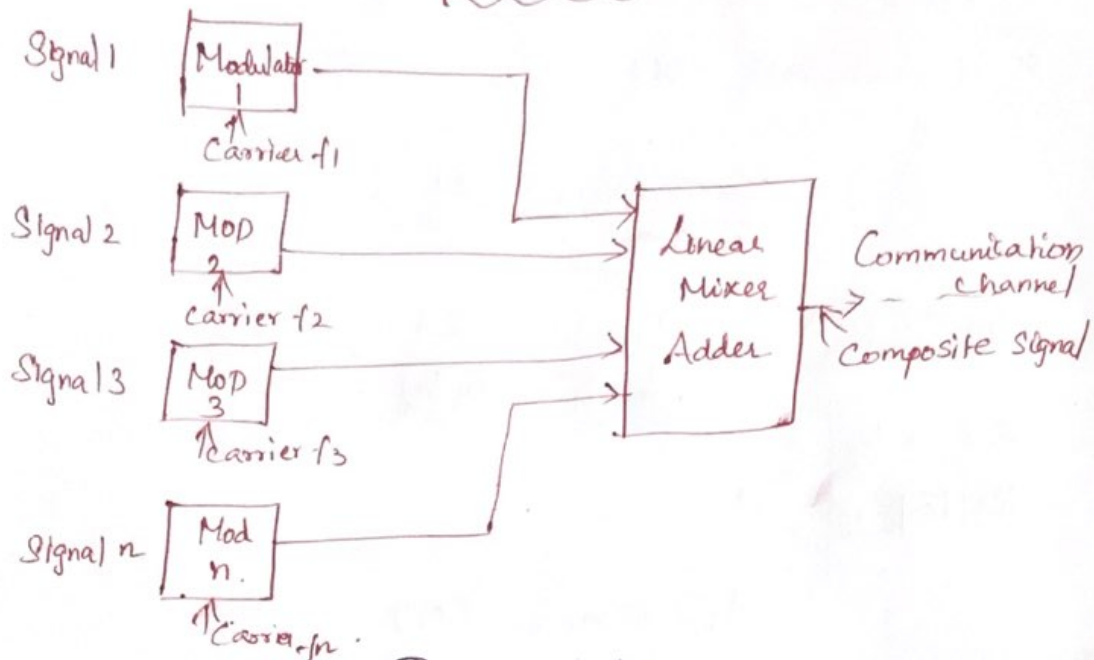 Signal 1
Modulator
1
Carrier f1
Signal 2
MOD
2
Carrier f2
Signal 3
MOD
3
Carrier f3
Signal n
Mod
n.
Carrier fn.
Linear
Mixer
Adder
Communication
channel
Composite Signal